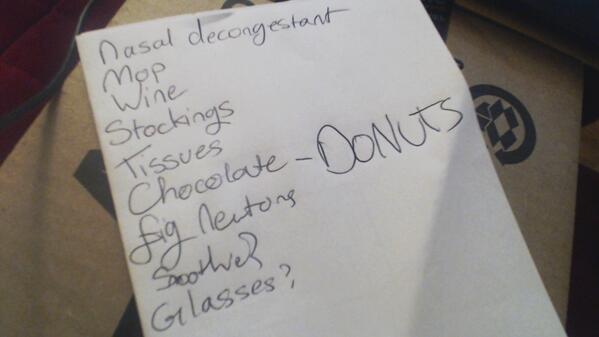 Nasal decongestant
Mop
Wine
Stockings
Tissues
Chocolate - DONUTS
fig Newtons
Smoothie?
Glasses?